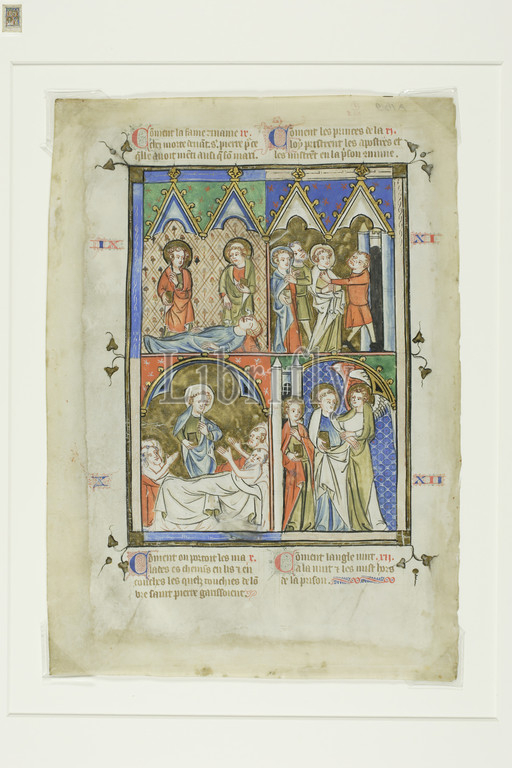 Cōment la fame
chei morte deuāt. s. pierre p ce
q̄lle auoit mēti ausi q̄ sō mari.
Coment les princes de la xi.
loy pristrent les apostres et
les mistrēt en la pson
IX
XI
X
XII
Coment on portoit les ma x.
lades es chemīs en lis ⁊ en
couches les quex touches de lō
bre saint pierre garissoient.
Coment langle uint .xii.
a la nuit ⁊ les mist hors
de la prison.